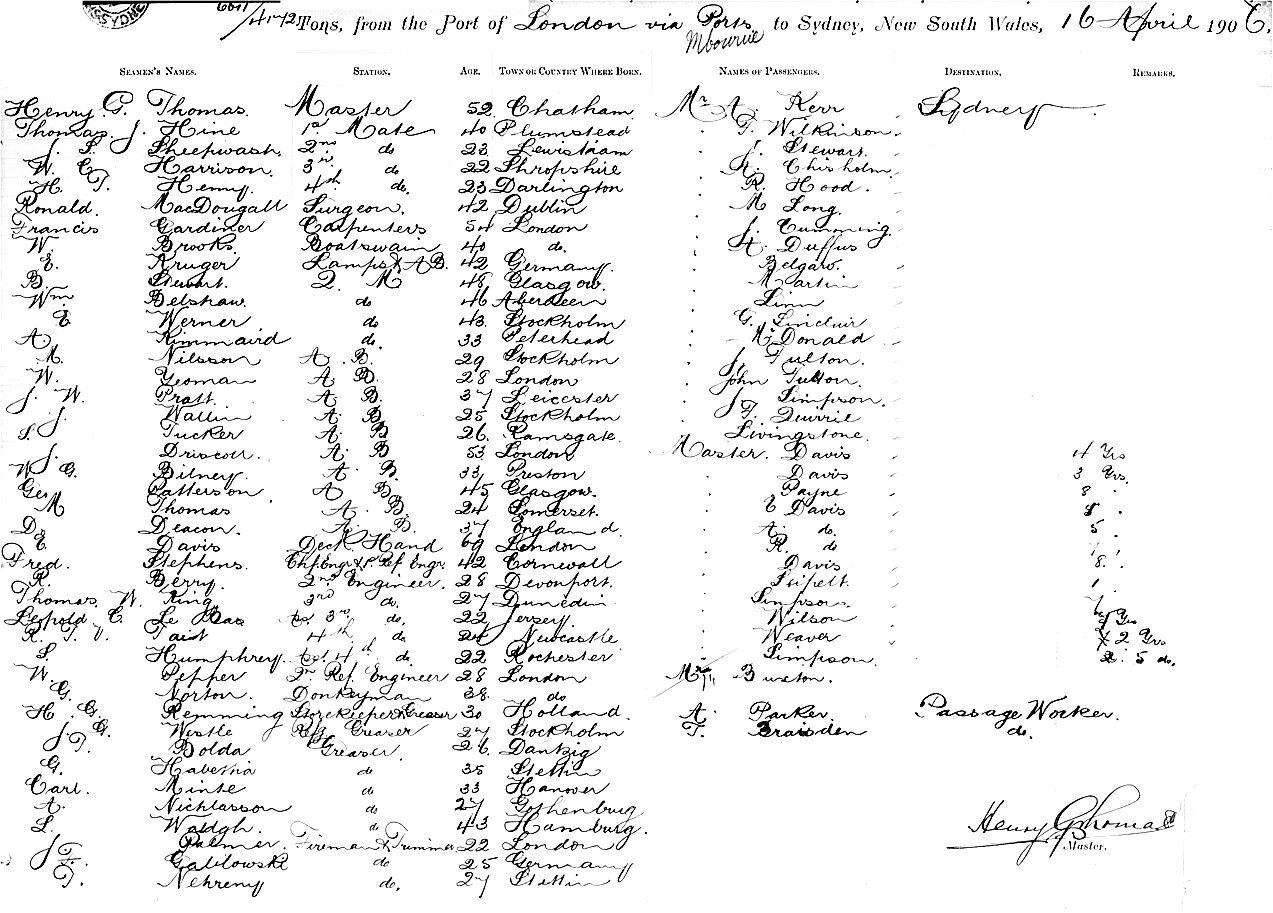 SYDNEY
6611/4572 Tons, from the Port of London via Ports to Sydney, New South Wales, 16 April 1906.
Mbourne
SEAMEN'S NAMES. STATION. AGE. TOWN OR COUNTRY WHERE BORN. NAMES OF PASSENGERS. DESTINATION. REMARKS.
Henry G. Thomas Master 52 Chatham Mr A. Kerr Sydney
Thomas J. Hine 1st Mate 40 Plumstead T. Wilkinson
J. S. Sheepwash 2nd do 28 Lewisham J. Stewart.
W. C. Harrison 3rd do 22 Shropshire A. Chisholm
H. T. Henry. 4th do. 23 Darlington R. Hood.
Ronald. MacDougall Surgeon. 42 Dublin M Long.
Francis Gardiner Carpenters 54 London J. Cumming
W. Brooks Boatswain 40 do. A. Duffus
E. Kruger Lamps & A.B. 42 Germany. Belgard.
B. Stewart. Q. M 48 Glasgow. Martin
Wm Belshaw. do 46 Aberdeen Linn
E Werner do 43. Stockholm G. Sinclair
A Kinnaird do. 33 Peterhead McDonald
M. Nilsson A. B. 29 Stockholm J. Fulton.
W. Yeoman A B. 28 London John Fulton.
J. W. Pratt. A. B. 37 Leicester J Simpson.
J. Wallin A. B. 25 Stockholm T. Quirrie
S. Tucker A. B 26. Ramsgate. Livingstone.
J. Driscoll. A. B 53 London Master. Davis 4 Yrs
W G. Bilney. A. B. 33 Preston Davis 3 Yrs.
Geo Patterson A B. 45 Glasgow. Payne 8 "
M Thomas A. B. 24 Somerset. E Davis 8 "
D. Deacon. A. B. 37 England. A. do 5
E. Davis Deck Hand 69 London R. do
Fred. Stephens. Chf Engr & 1st Ref. Engr. 42 Cornwall Davis 8.
R. Berry. 2nd Engineer. 28 Devonport. 1
Thomas W. King 3rd do. 27 Dunedin Simpson.
Leopold C. Le Bas 3rd do. 22 Jersey. Wilson Yrs
R. T. V. Tait 4th do 24 Newcastle Weaver 2 Yrs
S. Humphrey. 4th do. 22 Rochester Simpson. 5 do.
W. Pepper 2nd Ref. Engineer 28 London Burton.
G. Norton. Donkeyman 38. do
H. G. Remming Storekeeper & Greaser 30 Holland. A. Parker Passage Worker.
J. G. Westle Ref Greaser 27 Stockholm T. Braisden do.
T. Bolda Greaser. 26. Dantzig
G. Habetha do 35 Stettin
Carl. Minte do 33 Hanover
A. Nicklasson do 27 Gothenburg
L. Waldgh. do 43 Hamburg.
J. Palmer. Fireman & Trimmer 22 London Henry G Thomas
Master.
F. Galilowski do 25 Germany
T. Nehreny do. 27 Stettin